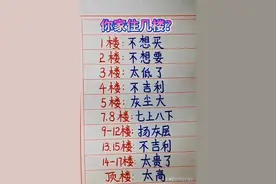 你家住几楼?
1楼:不想买
2楼:不想要
3楼:太低了
4楼:不吉利
5楼:灰尘大
7.8楼:七上八下
9-12楼:扬灰层
13.15楼:不吉利
14-17楼:太贵了
顶楼:太高